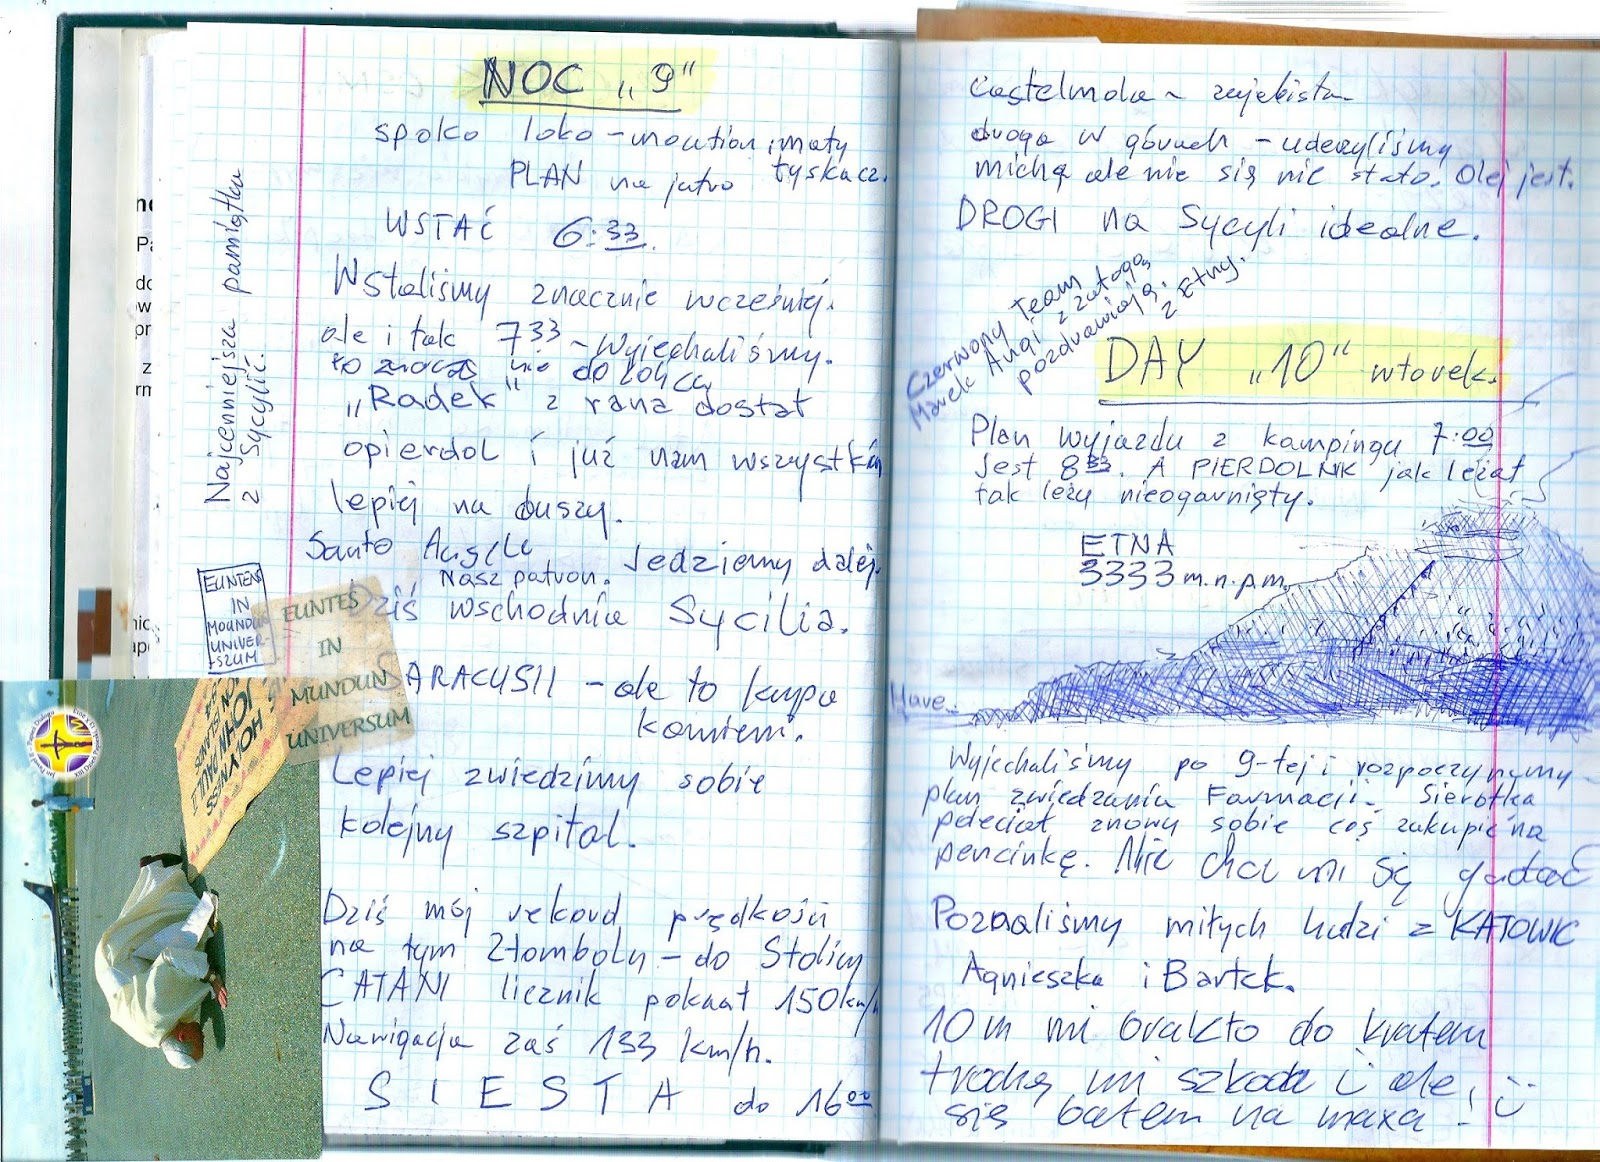 NOC „9"
spoko loko – moution, maty
PLAN na jutro tyskacz.
WSTAĆ 6:33.
Wstaliśmy znacznie wcześniej.
ale i tak 7 33 – wyjechaliśmy.
to
„Radek" z rana dostał
opierdol i już nam wszystkim
lepiej na duszy.
Santo Jedziemy dalej.
Nasz patron.
Dziś wschodnia Sycilia.
SARACUSII – ale to kupa
kamieni.
Lepiej zwiedzimy sobie
kolejny szpital.
Dziś mój rekord prędkości
na tym Złombolu – do Stolicy
CATANI licznik pokazał 150 km/h
Nawigacja zaś 133 km/h.
SIESTA do 16 00
Najcenniejsza pamiątka
z Sycylii.
EUNTENS
IN
MOUNDUN
UNIVER-
SZUM
EUNTES
IN
MUNDUN
UNIVERSUM
Castelmola ~ zajebista
droga w górach – uderzyliśmy
michą ale nic się nie stało. Olej jest.
DROGI na Sycyli idealne.
Czerwony Team
Marek Angi z załogą
pozdrawiają.
z Etny.
DAY „10" wtorek.
Plan wyjazdu z kampingu 7:00
Jest 8 33. A PIERDOLNIK jak leżał
tak leży nieogarnięty.
ETNA
3333 m.n.p.m.
Wyjechaliśmy po 9-tej i rozpoczynamy
plan zwiedzania Farmacji. Sierotka
poleciał znowu sobie coś zakupić na
pęcinkę. Nie chce mi się gadać
Poznaliśmy miłych ludzi z KATOWIC
Agnieszka i Bartek.
10 m mi brakło do krateru
trochę mi szkoda i ale
się bałem na maxa!